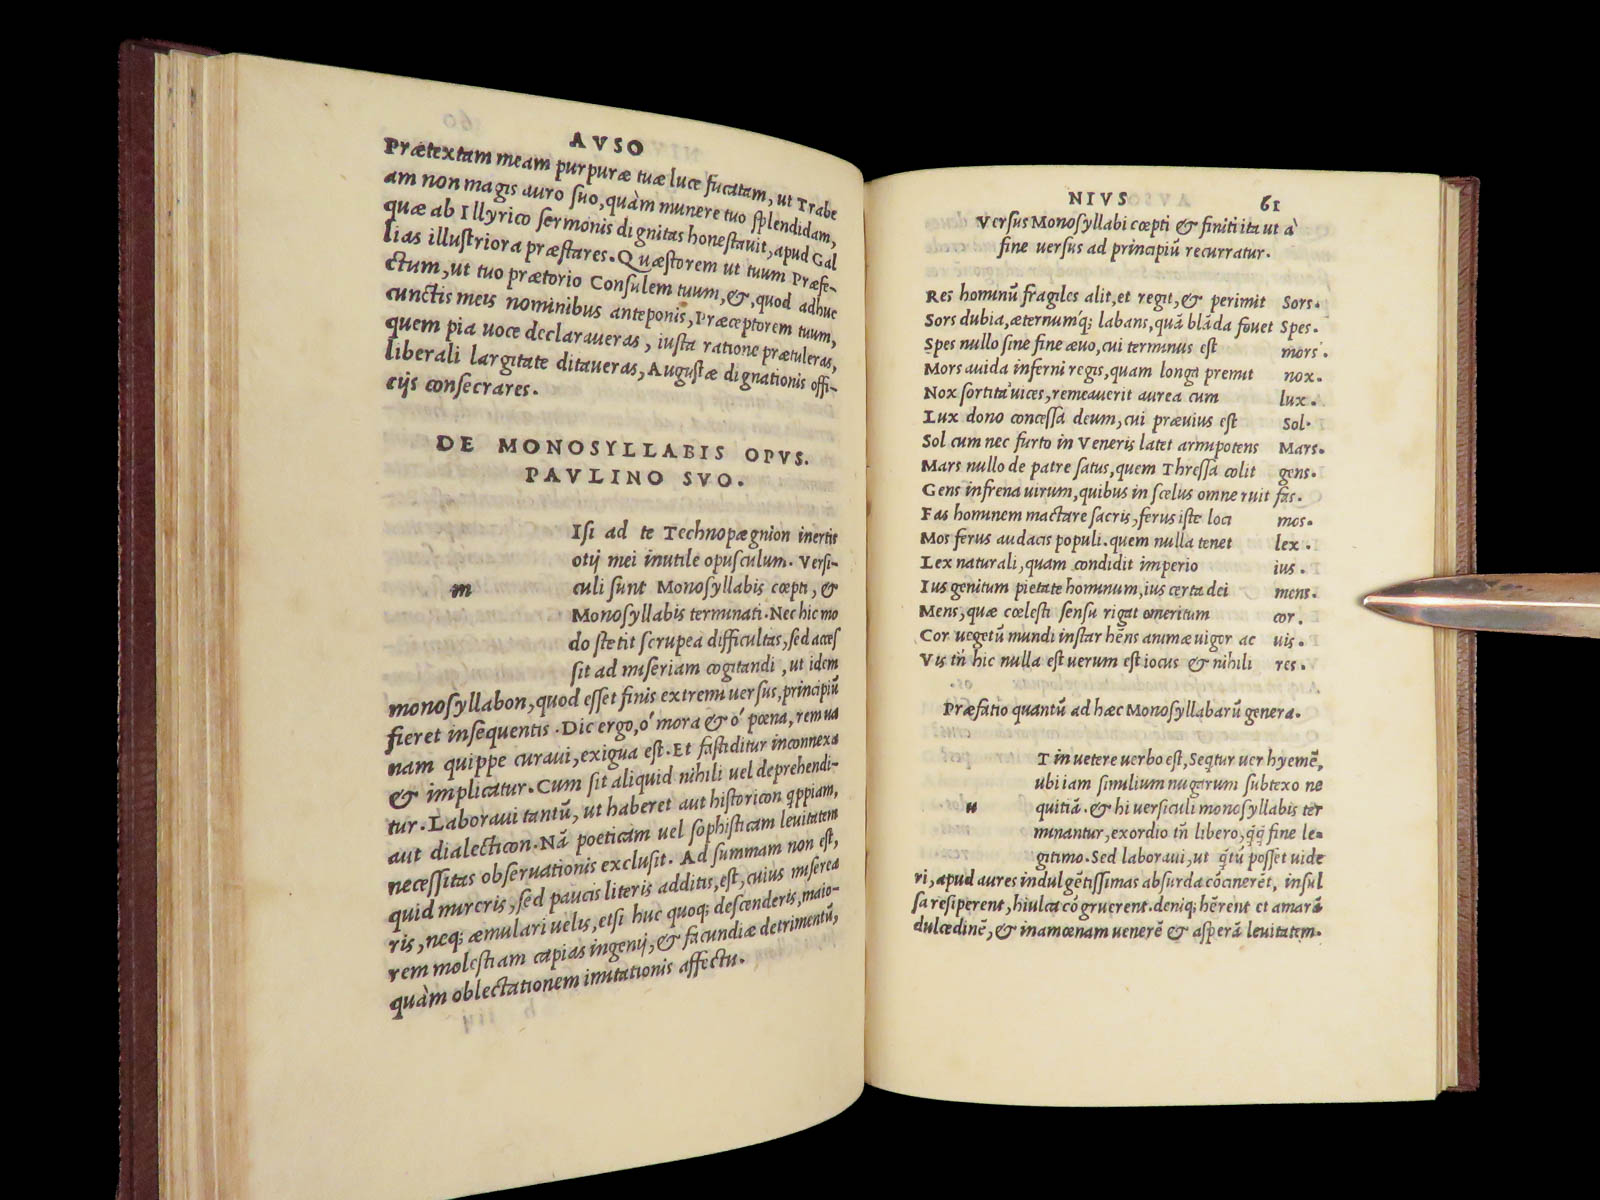 AVSO
Prætextam meam purpuræ tuæ luce fucatam, ut Trabe
am non magis auro suo, quàm munere tuo splendidam,
quæ ab Illyrico sermonis dignitas honestauit, apud Gal
lias illustriora præstares. Quæstorem ut tuum Præfe-
ctum, ut tuo prætorio Consulem tuum, &, quod adhuc
cunctis meis nominibus anteponis, Præceptorem tuum,
quem pia uoce declaraueras, iusta ratione prætuleras,
liberali largitate ditaueras, Augustæ dignationis offi-
cijs consecrares.
DE MONOSYLLABIS OPVS.
PAVLINO SVO.
Isi ad te Technopægnion inertis
otij mei inutile opusculum. Versi-
m culi sunt Monosyllabis cœpti, &
Monosyllabis terminati. Nec hic mo
do stetit scrupea difficultas, sed acces
sit ad miseriam cogitandi, ut idem
monosyllabon, quod esset finis extremi uersus, principiũ
fieret insequentis. Dic ergo, ó mora & ó pœna, rem ua
nam quippe curaui, exigua est. Et fastiditur inconnexa
& implicatur. Cum sit aliquid nihili uel deprehendi-
tur. Laboraui tantũ, ut haberet aut historicon q̃ppiam,
aut dialecticon. Nã poeticam uel sophisticam leuitatem
necessitas obseruationis exclusit. Ad summam non est,
quid mircris, sed paucis literis additis, est, cuius miserea
ris, neq; æmulari uelis, etsi huc quoq; descenderis, maio-
rem molestiam capias ingenij, & facundiæ detrimentũ,
quàm oblectationem imitationis affectu.
NIVS 61
Versus Monosyllabi cœpti & finiti ita ut à
fine uersus ad principiũ recurratur.
Res hominũ fragiles alit, et regit, & perimit Sors.
Sors dubia, æternumq́; labans, quã blãda fouet Spes.
Spes nullo sine fine æuo, cui terminus est mors.
Mors auida inferni regis, quam longa premit nox.
Nox sortita uices, remeauerit aurea cum lux.
Lux dono concessa deum, cui præuius est Sol.
Sol cum nec furto in Veneris latet armipotens Mars.
Mars nullo de patre satus, quem Thressa colit gens.
Gens infrena uirum, quibus in scelus omne ruit fas.
Fas hominem mactare sacris, ferus iste loci mos.
Mos ferus audacis populi. quem nulla tenet lex.
Lex naturali, quam condidit imperio ius.
Ius genitum pietate hominum, ius certa dei mens.
Mens, quæ cœlesti sensu rigat emeritum cor.
Cor uegetũ mundi instar hẽns animæ uigor ac uis.
Vis tñ hic nulla est uerum est iocus & nihili res.
Præfatio quantũ ad hæc Monosyllabarũ genera.
T in uetere uerbo est, Seq̃tur uer hyemẽ,
ubi iam similium nugarum subtexo ne
u quitiã. & hi uersiculi monosyllabis ter
minantur, exordio tñ libero, q̃q̃ fine le-
gitimo. Sed laboraui, ut q̃tũ posset uide
ri, apud aures indulgẽtissimas absurda cõcinerẽt, insul
sa resiperent, hiulca cõgruerent. deniq; hẽrent et amarã
dulcedinẽ, & inamœnam uenerẽ & asperã leuitatem.